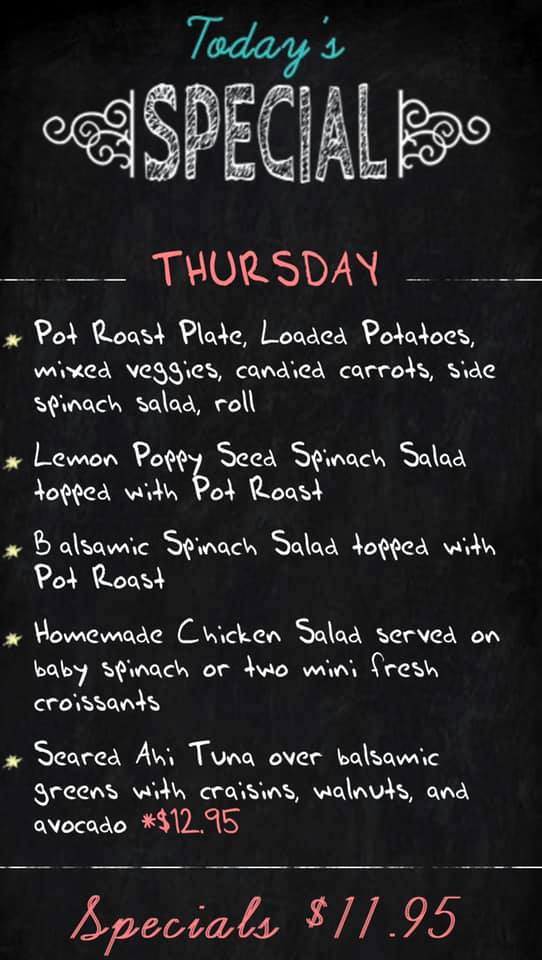 Today's
SPECIAL
THURSDAY
Pot Roast Plate, Loaded Potatoes,
mixed veggies, candied carrots, side
spinach salad, roll
Lemon Poppy Seed Spinach Salad
topped with Pot Roast
Balsamic Spinach Salad topped with
Pot Roast
Homemade Chicken Salad served on
baby spinach or two mini fresh
croissants
Seared Ahi Tuna over balsamic
greens with craisins, walnuts, and
avocado *$12.95
Specials $11.95